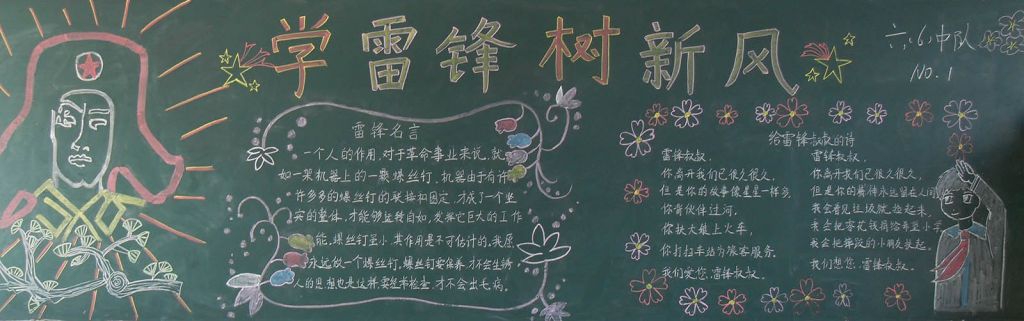 学雷锋树新风
六（6）中队
NO.1
雷锋名言
一个人的作用,对于革命事业来说,就
如一架机器上的一颗螺丝钉,机器由于有许
许多多的螺丝钉的联接和固定,才成了一个坚
实的整体,才能够运转自如,发挥它巨大的工作
能,螺丝钉虽小,其作用是不可估计的,我愿
永远做一个螺丝钉,螺丝钉要保养,才不会生锈,
人的思想也是这样,要经常检查,才不会出毛病。
给雷锋叔叔的诗
雷锋叔叔,
你离开我们已很久很久,
但是你的故事像星星一样多,
你背伙伴过河,
你扶大娘上火车,
你打扫车站为旅客服务。
我们爱您,雷锋叔叔。
雷锋叔叔,
你离开我们已很久很久,
但是你的精神永远留在人间
我会看见垃圾就捡起来,
我会把零花钱捐给希望小学
我会把摔跤的小朋友扶起,
我们想您,雷锋叔叔。